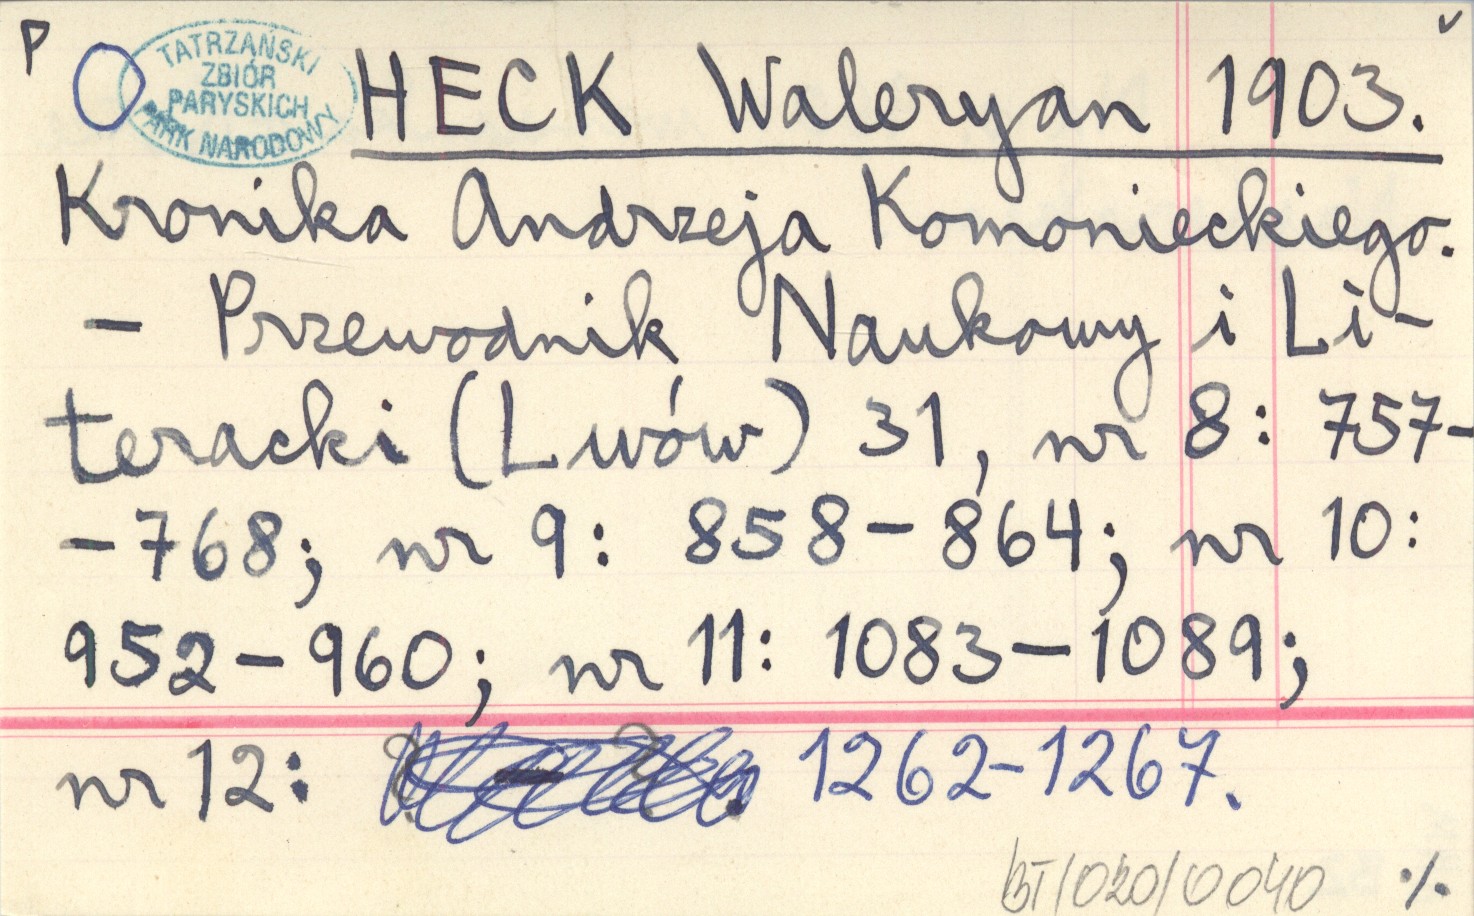 P
TATRZAŃSKI
ZBIÓR
PARYSKICH
PARK NARODOWY
HECK Waleryan 1903.
Kronika Andrzeja Komonieckiego.
- Przewodnik Naukowy i Li-
teracki (Lwów) 31, nr 8: 757-
-768; nr 9: 858-864; nr 10:
952-960; nr 11: 1083-1089;
nr 12: 1262-1267.
BT/020/0040 ./.